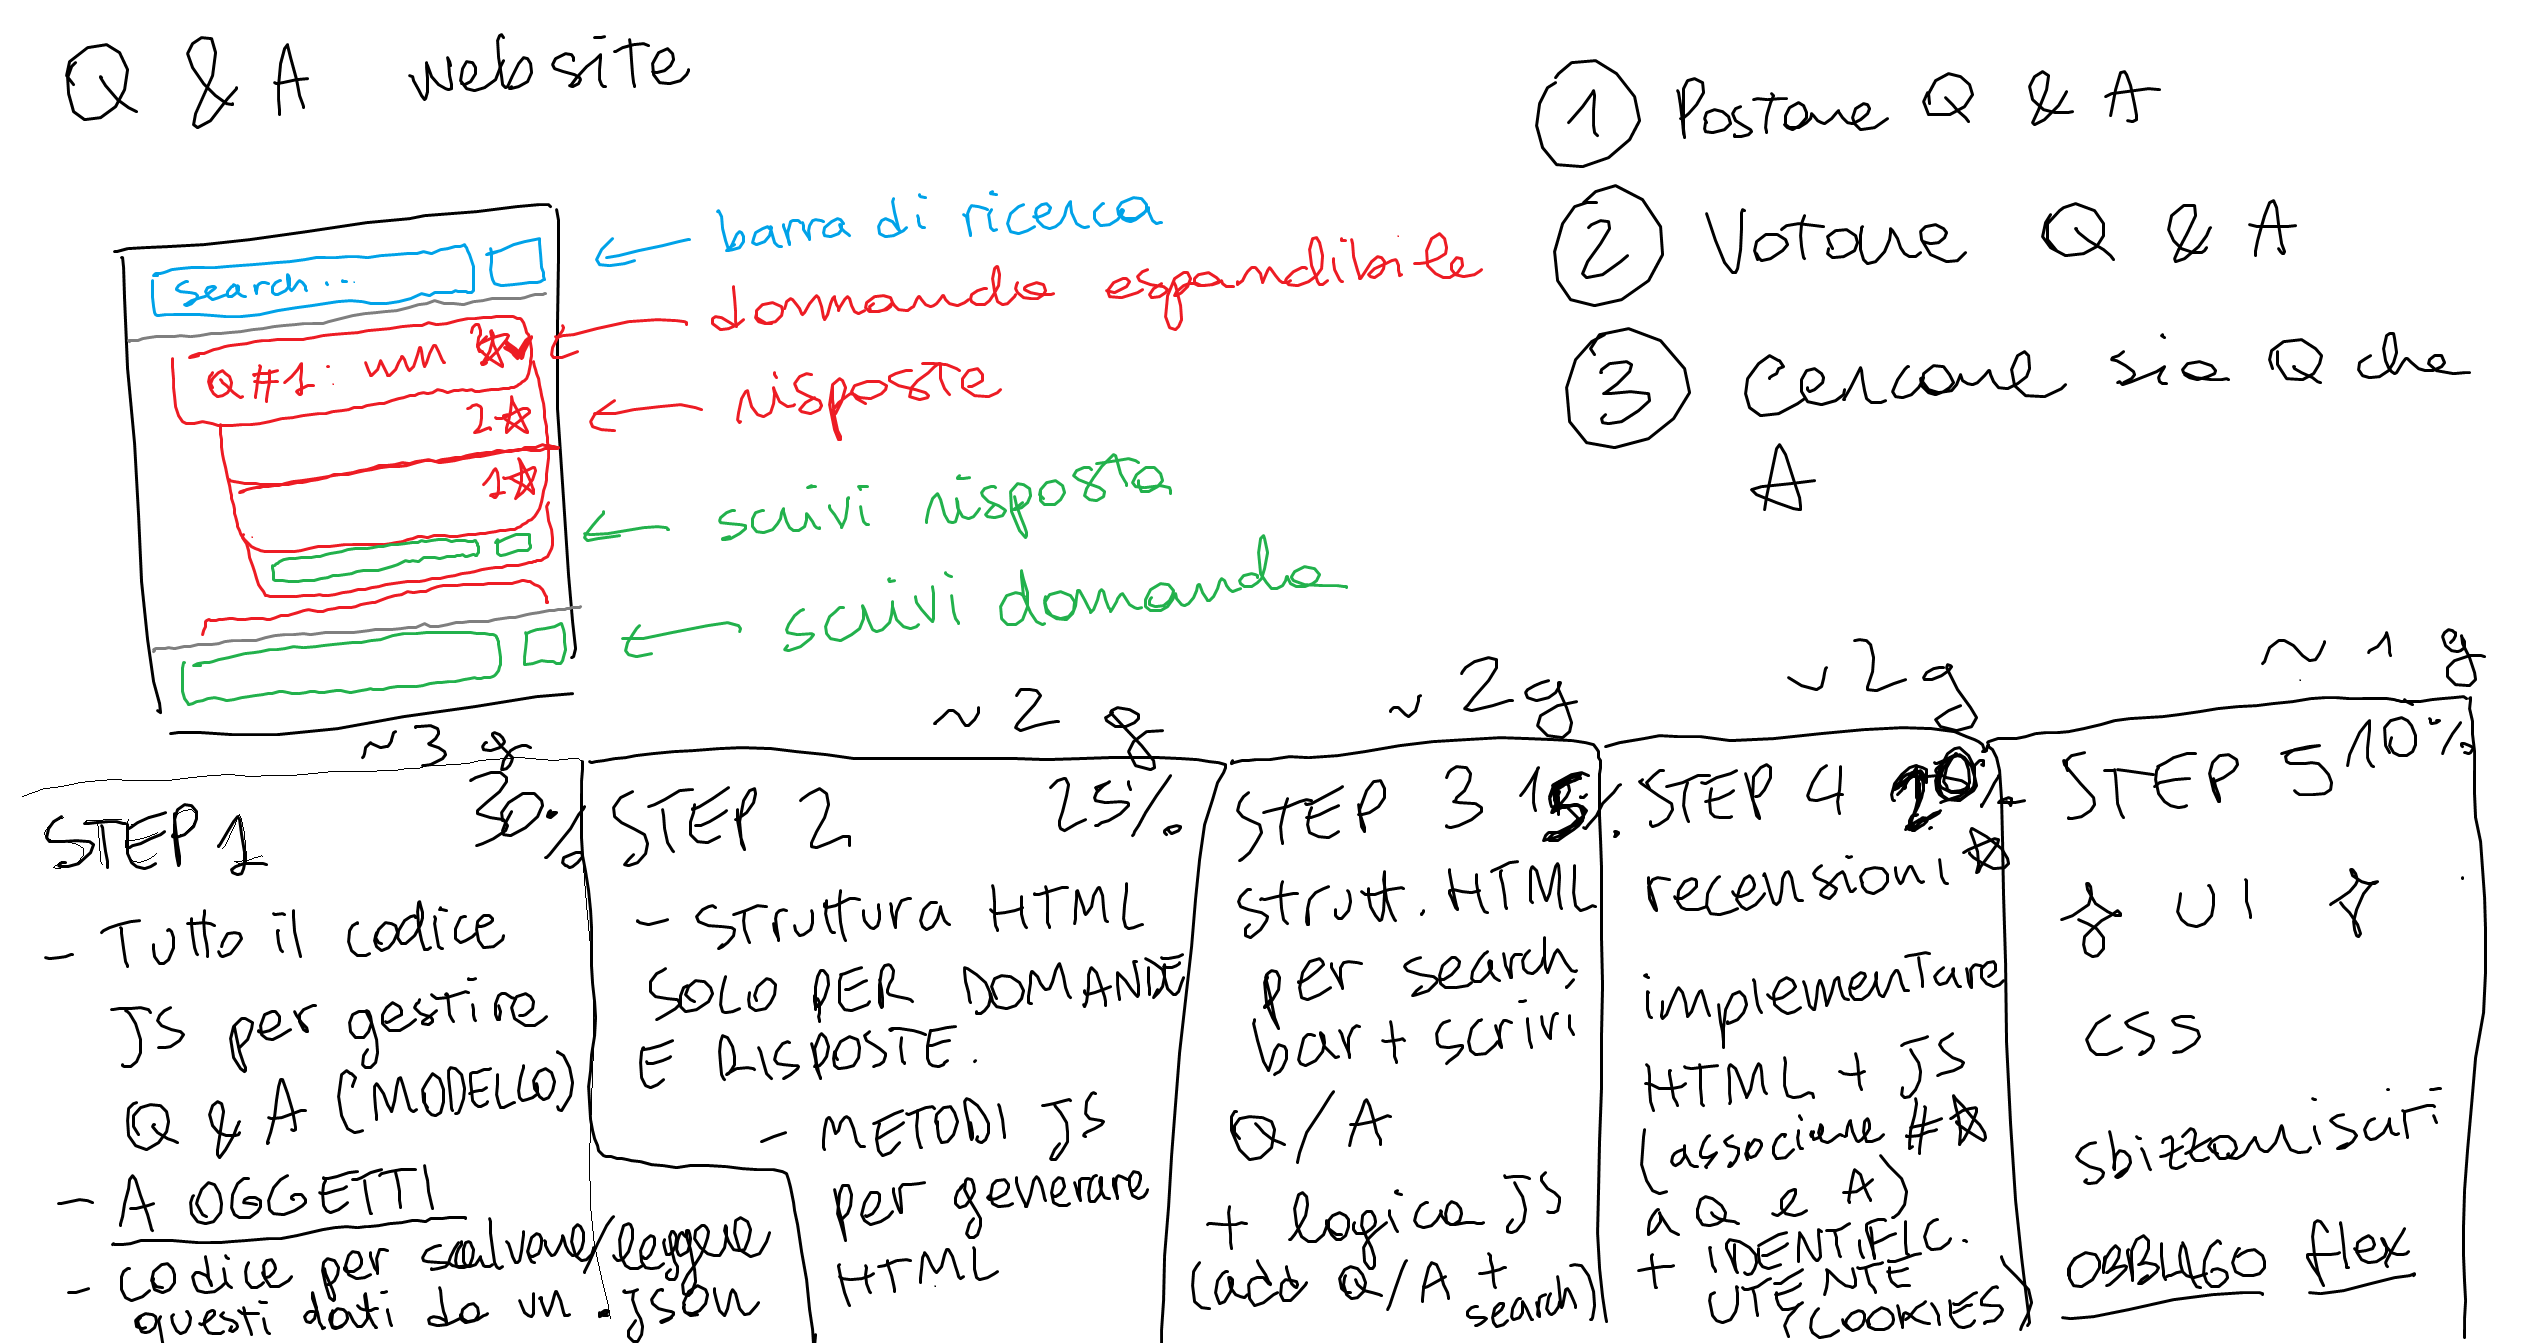 Q & A website
① Postare Q & A
② Votare Q & A
③ Cercare sia Q che
A
search...
← barra di ricerca
Q #1:
← domanda espandibile
2☆
← risposte
1☆
← scrivi risposta
← scrivi domanda
~3 g
STEP 1 30%
- Tutto il codice
JS per gestire
Q & A (MODELLO)
- A OGGETTI
- codice per salvare/leggere
questi dati da un .json
~ 2 g
STEP 2 25%
- struttura HTML
SOLO PER DOMANDE
E RISPOSTE.
- METODI JS
per generare
HTML
~ 2g
STEP 3 15%
strutt. HTML
per search
bar + scrivi
Q/A
+ logica JS
(add Q/A +
search)
~ 2g
STEP 4 20%
recensioni ☆
implementare
HTML + JS
(associare #☆
a Q e A)
+ IDENTIFIC.
UTENTE
(COOKIES)
~ 1 g
STEP 5 10%
UI
CSS
sbizzarrisciti
OBBLIGO flex